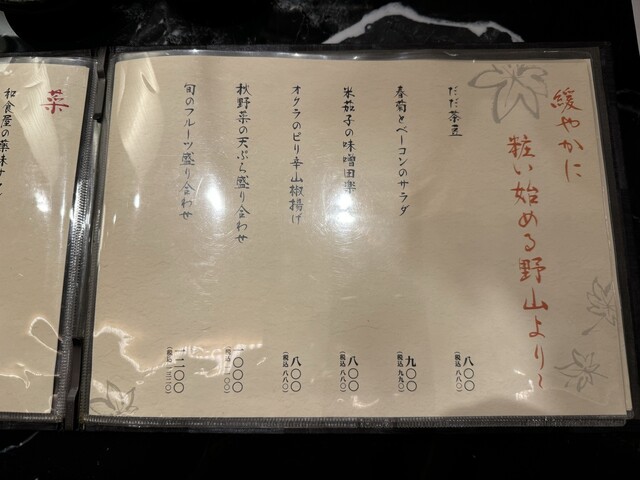 緩やかに
粧い始める野山より〜
だだ茶豆
八〇〇
(税込 八八〇)
春菊とベーコンのサラダ
九〇〇
(税込 九九〇)
米茄子の味噌田楽
八〇〇
(税込 八八〇)
オクラのピリ辛山椒揚げ
八〇〇
(税込 八八〇)
秋野菜の天ぷら盛り合わせ
一〇〇〇
(税込 一一〇〇)
旬のフルーツ盛り合わせ
一二〇〇
(税込 一三二〇)
菜
和食屋の薬味サラ